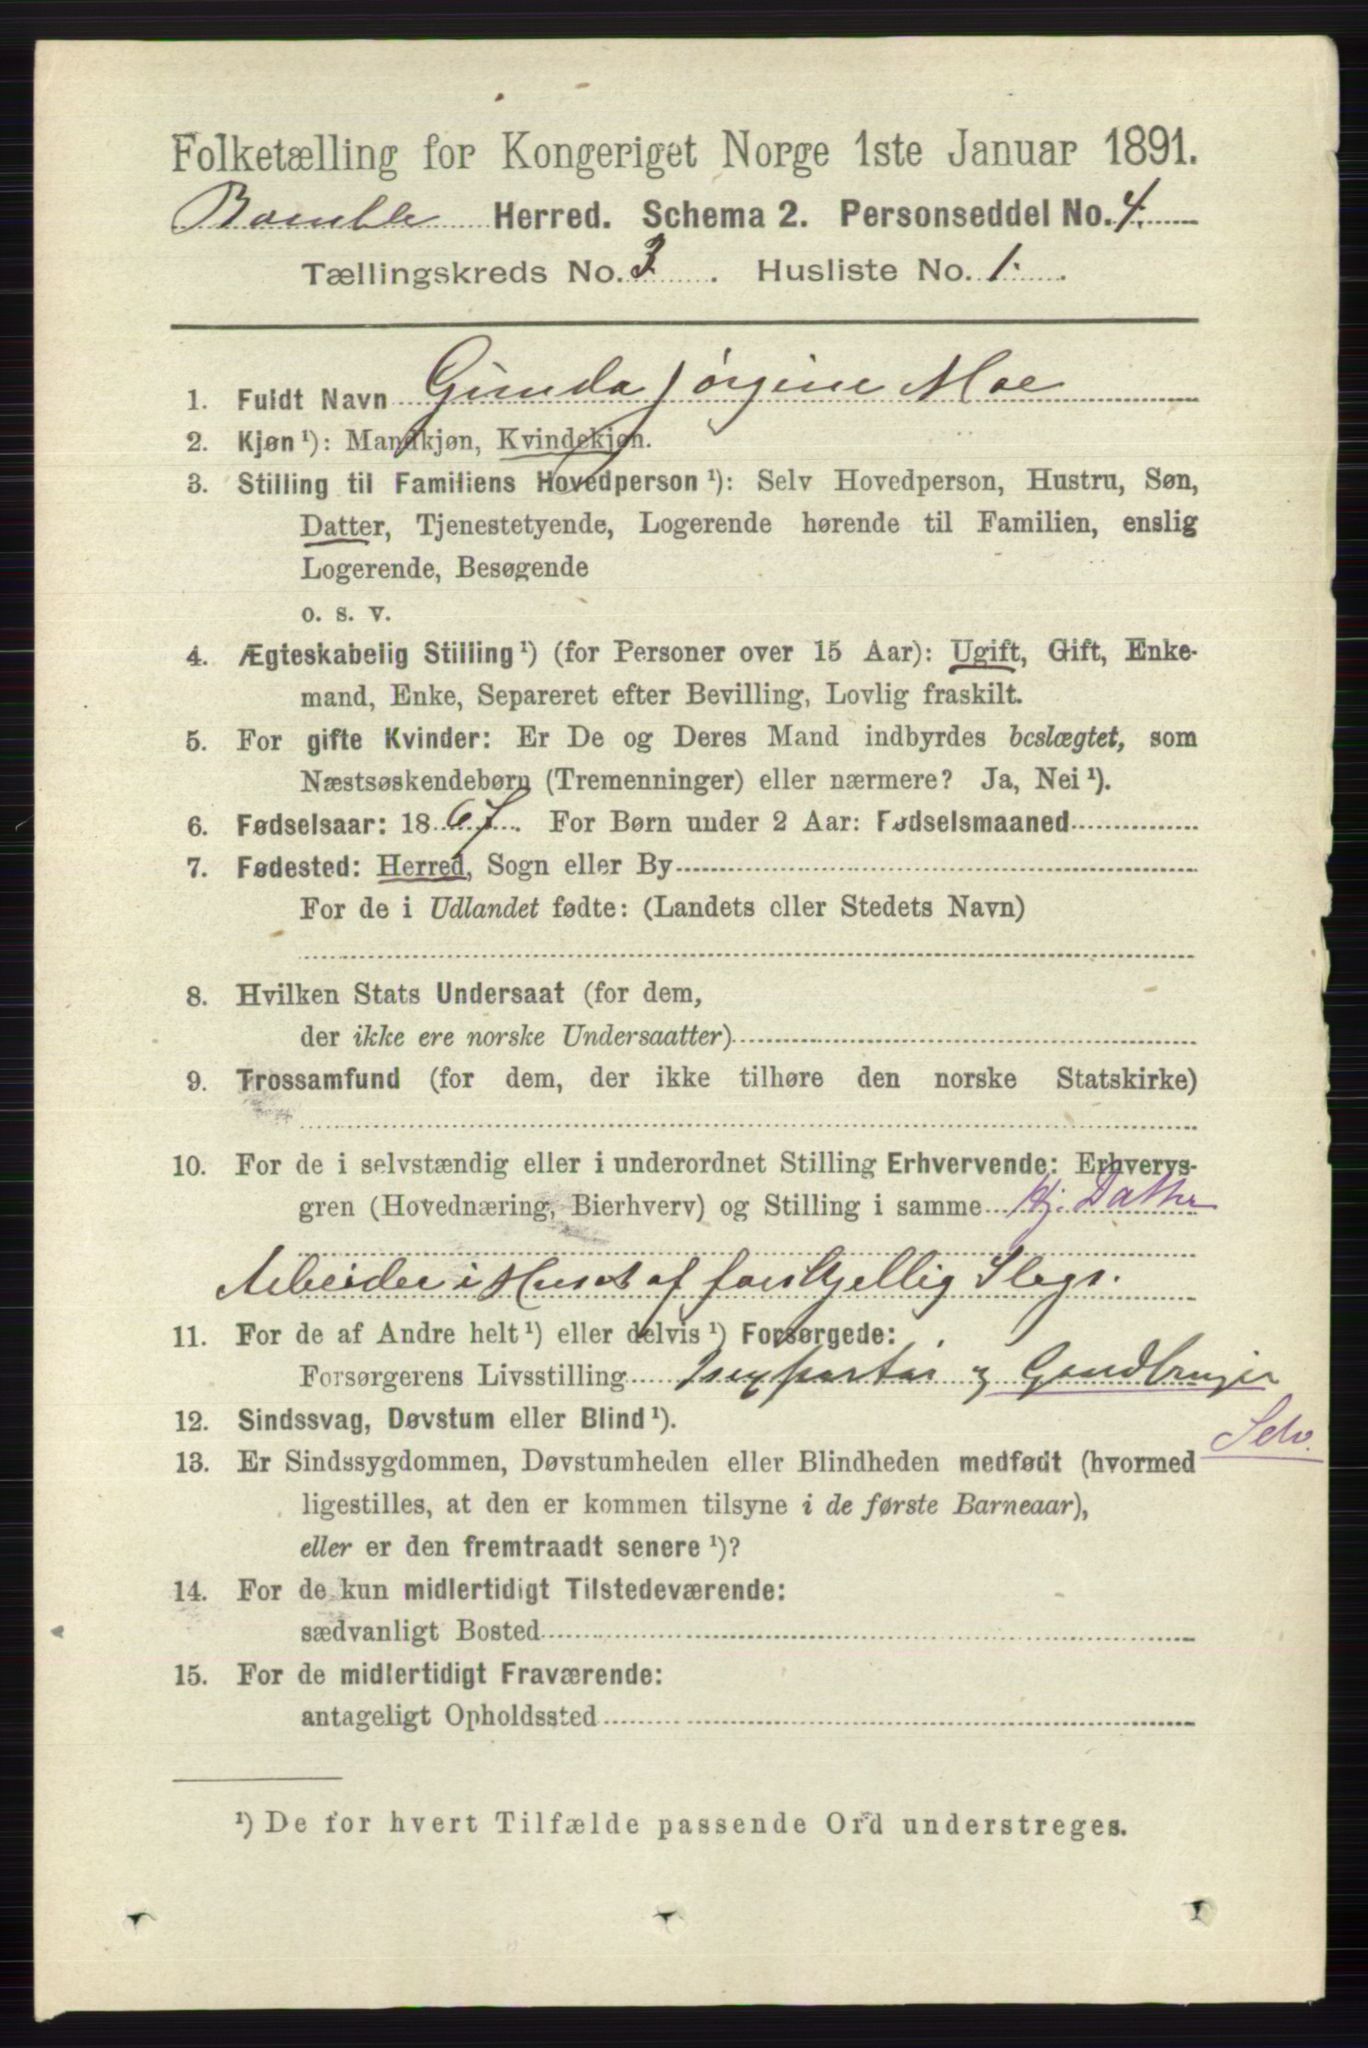 Folketælling for Kongeriget Norge 1ste Januar 1891.
Bamble Herred. Schema 2. Personseddel No. 4.
Tællingskreds No. 3. Husliste No. 1.
1. Fuldt Navn Gunda Jørgine Moe
2. Kjøn ¹): Mandkjøn, Kvindekjøn.
3. Stilling til Familiens Hovedperson ¹): Selv Hovedperson, Hustru, Søn,
Datter, Tjenestetyende, Logerende hørende til Familien, enslig
Logerende, Besøgende
o. s. v.
4. Ægteskabelig Stilling ¹) (for Personer over 15 Aar): Ugift, Gift, Enke-
mand, Enke, Separeret efter Bevilling, Lovlig fraskilt.
5. For gifte Kvinder: Er De og Deres Mand indbyrdes beslægtet, som
Næstsøskendebørn (Tremenninger) eller nærmere? Ja, Nei ¹).
6. Fødselsaar: 1867. For Børn under 2 Aar: Fødselsmaaned
7. Fødested: Herred, Sogn eller By
For de i Udlandet fødte: (Landets eller Stedets Navn)
8. Hvilken Stats Undersaat (for dem,
der ikke ere norske Undersaatter)
9. Trossamfund (for dem, der ikke tilhøre den norske Statskirke)
10. For de i selvstændig eller i underordnet Stilling Erhvervende: Erhvervs-
gren (Hovednæring, Bierhverv) og Stilling i samme Hj. Datter
Arbeider i Huset af forskjellig Slags.
11. For de af Andre helt ¹) eller delvis ¹) Forsørgede:
Forsørgerens Livsstilling og Gaardbruger
Selv.
12. Sindssvag, Døvstum eller Blind ¹).
13. Er Sindssygdommen, Døvstumheden eller Blindheden medfødt (hvormed
ligestilles, at den er kommen tilsyne i de første Barneaar),
eller er den fremtraadt senere ¹)?
14. For de kun midlertidigt Tilstedeværende:
sædvanligt Bosted
15. For de midlertidigt Fraværende:
antageligt Opholdssted
¹) De for hvert Tilfælde passende Ord understreges.